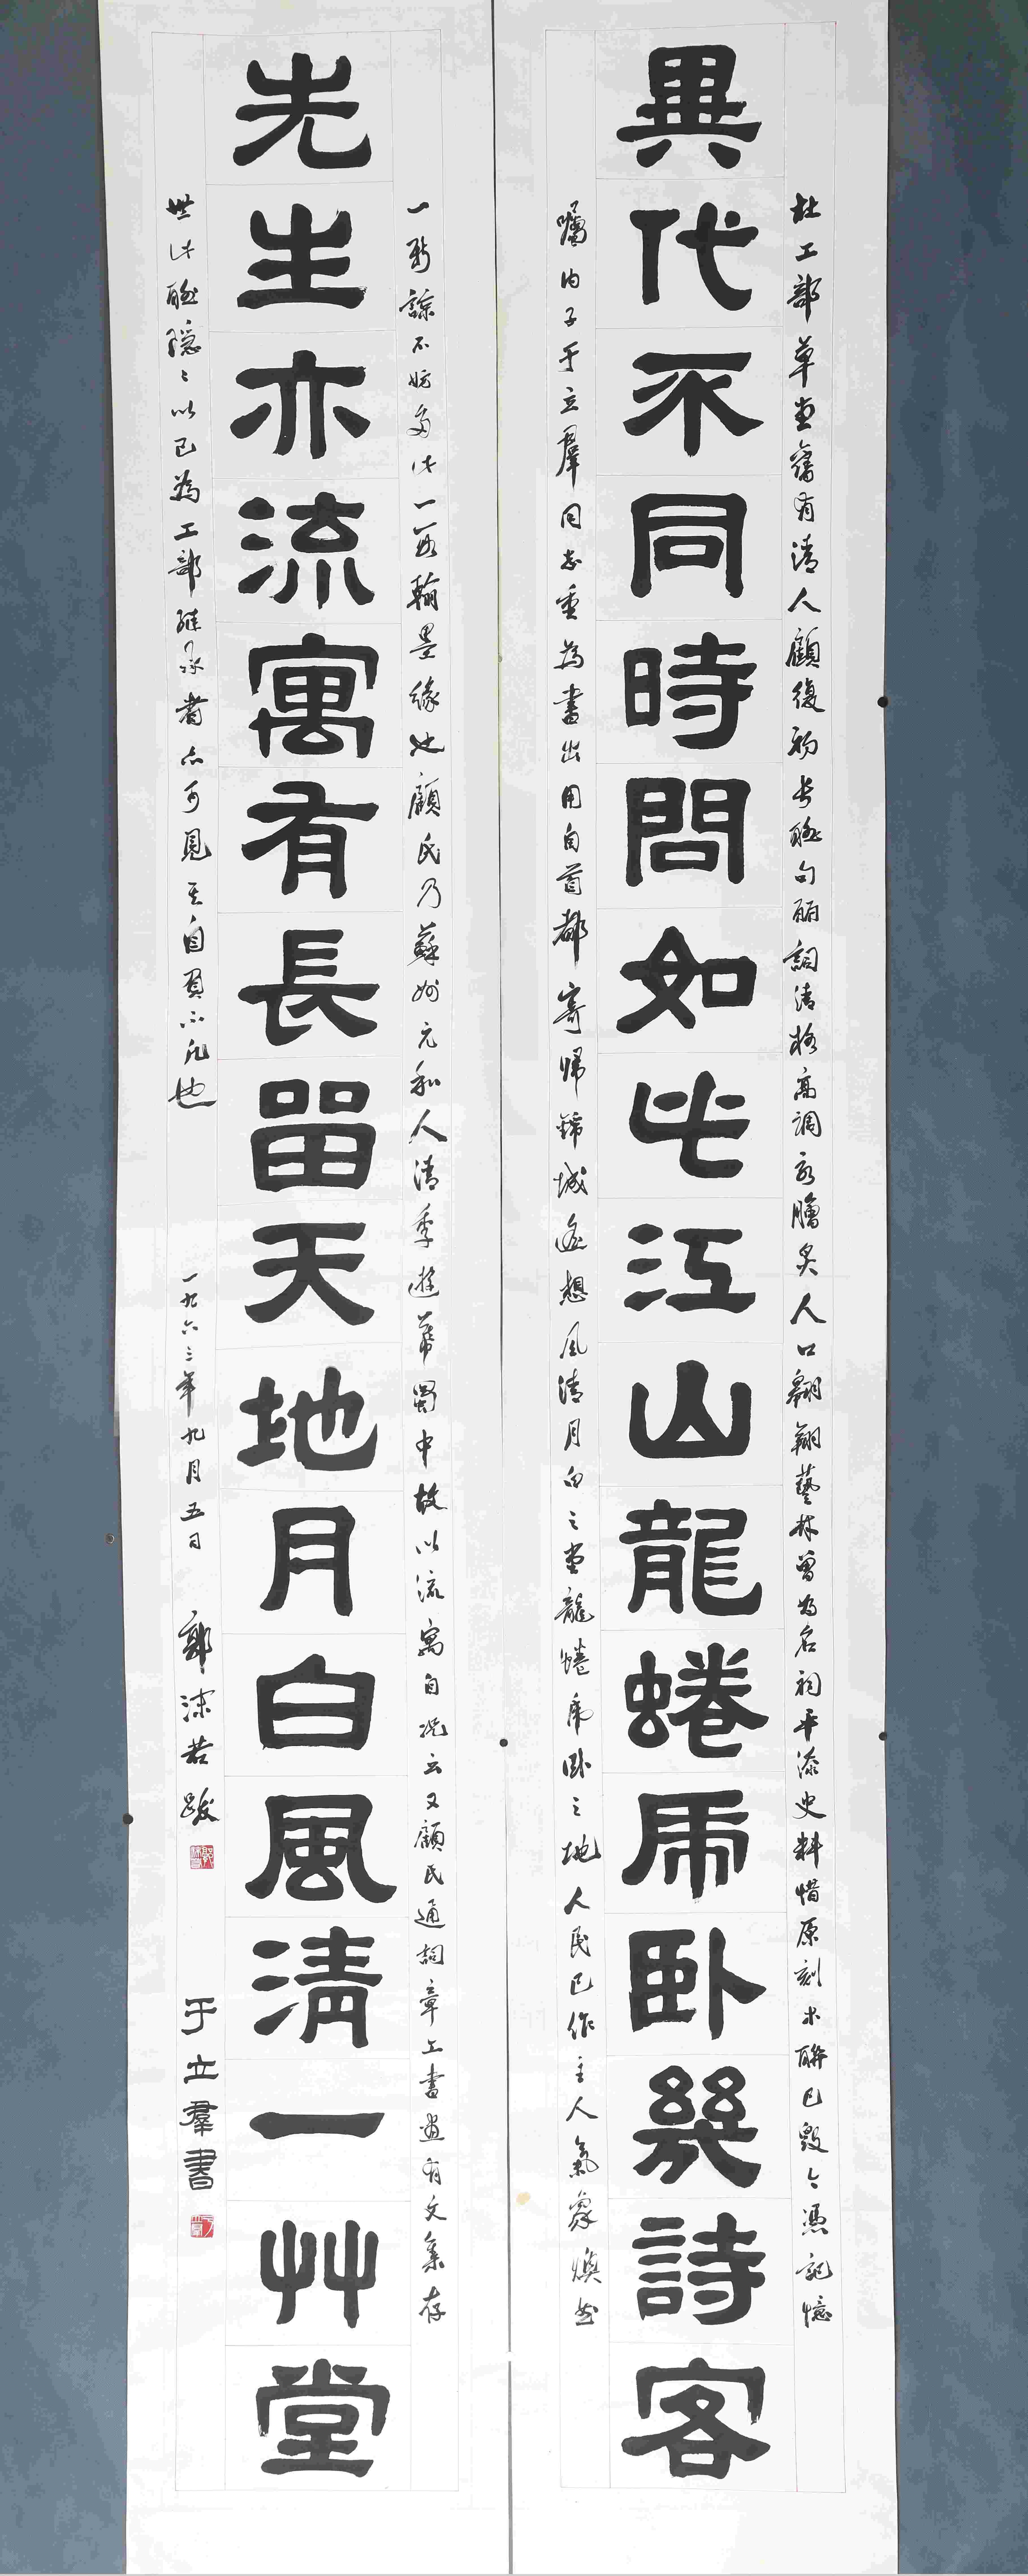 杜工部草堂舊有清人顧復初長聯句麗詞清格高調永膾炙人口翱翔藝林曾為名祠平添史料惜原刻木聯已毀今憑記憶
異代不同時問如此江山龍蜷虎臥幾詩客
囑內子于立羣同志重為書出用自首都寄歸錦城遙想風清月白之堂龍蜷虎臥之地人民已作主人氣象煥然
一新諒不妨多此一段翰墨緣也顧氏乃蘇州元和人清季遊幕蜀中故以流寓自況云又顧氏通詞章工書畫有文集存
先生亦流寓有長留天地月白風清一草堂
世此聯隱々以己為工部繼承者亦可見其自負不凡也
一九六三年九月五日 郭沫若跋
于立羣書